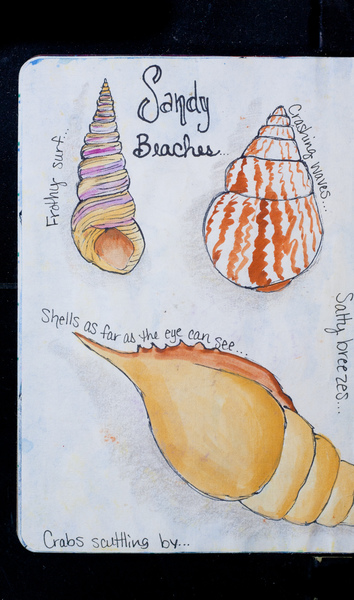 Sandy
Beaches...
Frothy surf...
Crashing waves...
Shells as far as the eye can see...
Salty breezes...
Crabs scuttling by...